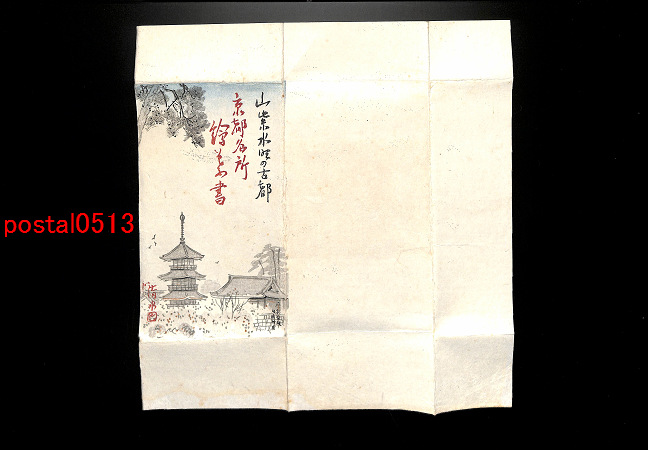 山紫水明の古都
京都名所
繪葉書
postal0513